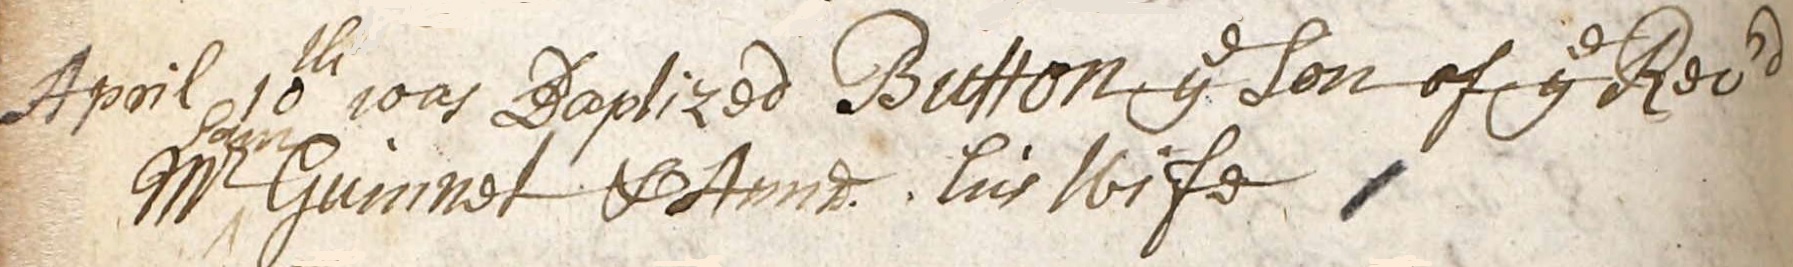 April 10th was Baptized Button ye Son of ye Rev'd
Sam
Mr Guinnet & Anne his Wife